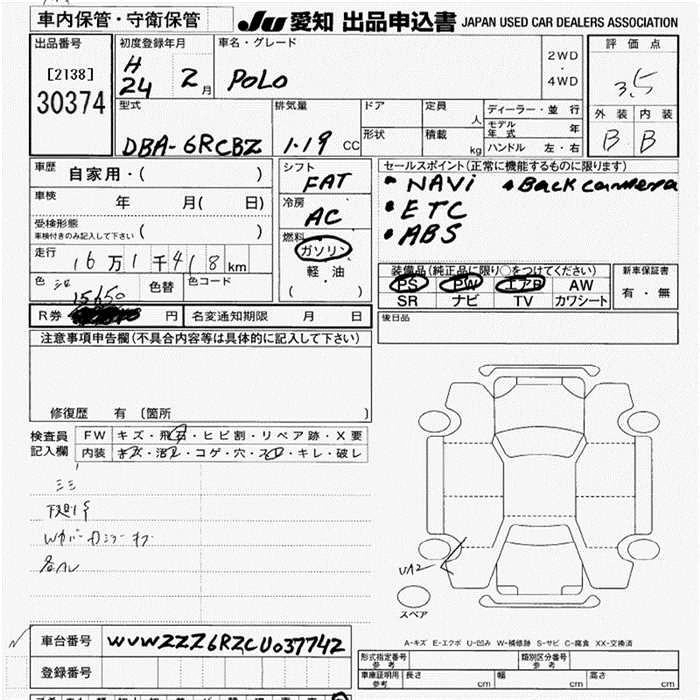 車内保管・守衛保管
JU 愛知 出品申込書 JAPAN USED CAR DEALERS ASSOCIATION
出品番号
[2138]
30374
初度登録年月
H 24 2月
車名・グレード
POLO
2WD
・
4WD
評価点
3.5
外装 内装
B B
型式
DBA-6RCBZ
排気量
1.19 CC
ドア
形状
定員
人
積載
kg
ディーラー・並行
モデル年式 年
ハンドル 左・右
車歴 自家用・( )
車検 年 月( 日)
受検形態
車検付きのみ記入して下さい ( )
走行 16万1千418km
色
色替
色コード
シフト
FAT
冷房
AC
燃料
ガソリン
軽・油
( )
セールスポイント(正常に機能するものに限ります)
・NAVi ・Back camera
・ETC
・ABS
装備品(純正品に限り○をつけてください)
PS PW エアB AW
SR ナビ TV カワシート
新車保証書
有・無
後日品
R券 円
15650
名変通知期限 月 日
注意事項申告欄(不具合内容等は具体的に記入して下さい)
修復歴 有 〔箇所 〕
検査員記入欄
FW キズ・飛石・ヒビ割・リペア跡・X要
内装 キズ・汚レ・コゲ・穴・スレ・キレ・破レ
UA2
スペア
A-キズ E-エクボ U-凹み W-補修跡 S-サビ C-腐食 XX-交換済
車台番号 WVWZZZ6RZCU037742
登録番号
形式指定番号 参考
類別区分番号 参考
車庫証明用 参考
長さ cm 幅 cm 高さ cm